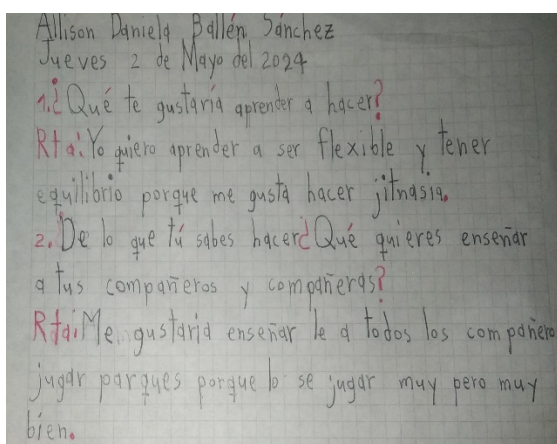 Allison Daniela Ballén Sánchez
Jueves 2 de Mayo del 2024
1.¿Qué te gustaría aprender a hacer?
Rta: Yo quiero aprender a ser flexible y tener
equilibrio porque me gusta hacer jitnasia.
2. De lo que tú sabes hacer¿Qué quieres enseñar
a tus compañeros y compañeras?
Rta: Me gustaría enseñar le a todos los compañero
jugar parques porque lo se jugar muy pero muy
bien.